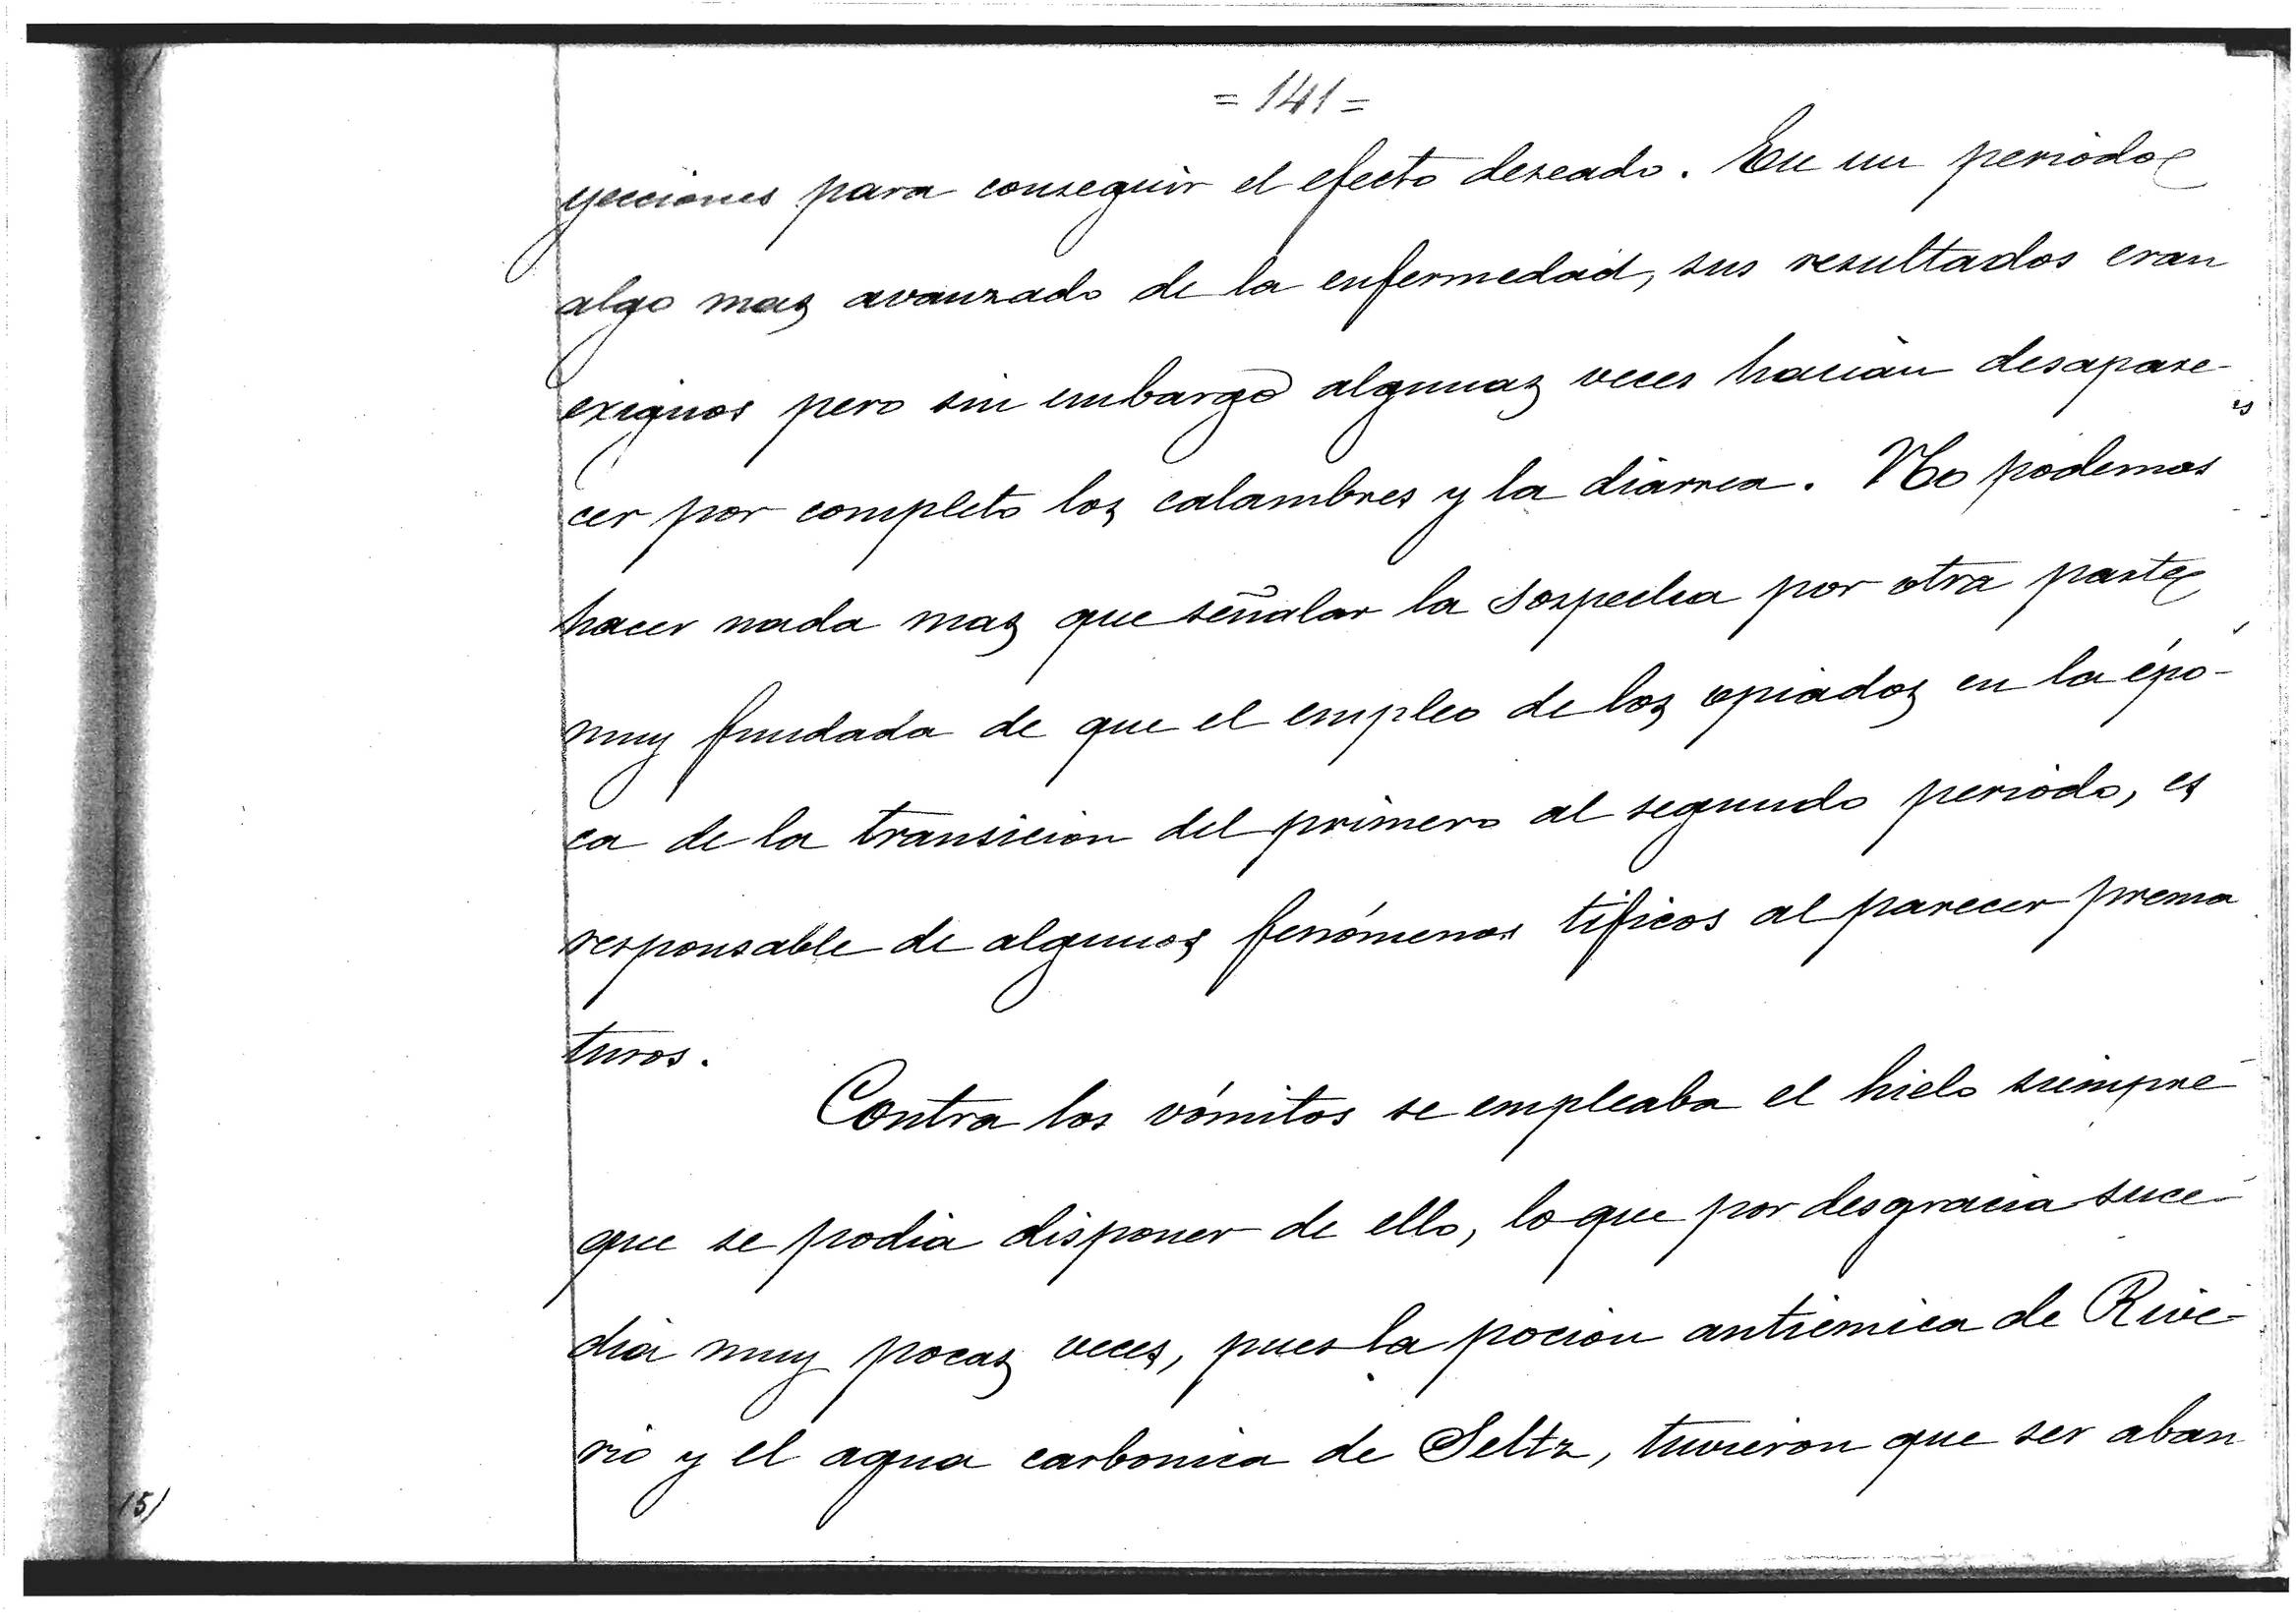 = 141 =
yecciones para conseguir el efecto deseado. En un periodo
algo mas avanzado de la enfermedad, sus resultados eran
exiguos pero sin embargo algunas veces hacian desapare-
cer por completo los calambres y la diarrea. No podemos
hacer nada mas que señalar la sospecha por otra parte
muy fundada de que el empleo de los opiados en la épo-
ca de la transicion del primero al segundo periodo, es
responsable de algunos fenómenos tificos al parecer prema
turos.
Contra los vómitos se empleaba el hielo siempre
que se podia disponer de ello, lo que por desgracia suce-
dia muy pocas veces, pues la pocion antiemica de Rive-
rio y el agua carbonica de Seltz, tuvieron que ser aban